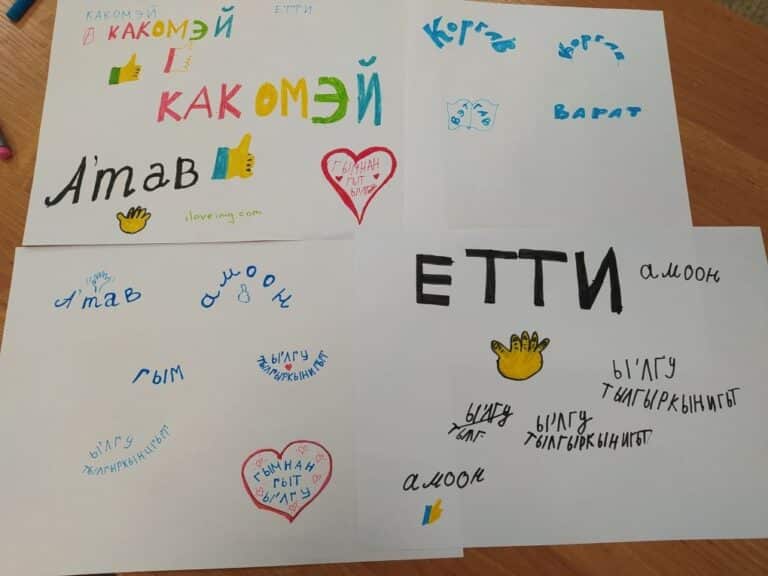 КАКОМЭЙ
ЕТТИ
КАКОМЭЙ
КАКОМЭЙ
А'тав
ГЫМНАН
ГЫТ
ЫʼЛГУ
iloveimg.com
Коргав
Коргав
ВЭТГАВ
ВАРАТ
А'тав
амоон
ГЫМ
ЫʼЛГУ
ТЫЛГЫРКЫНИГЫТ
ЫʼЛГУ
ТЫЛГЫРКЫНИГЫТ
ГЫМНАН
ГЫТ
ЫʼЛГУ
ЕТТИ
амоон
ЫʼЛГУ
ТЫЛГЫРКЫНИГЫТ
ЫʼЛГУ
ТЫЛГ
ЫʼЛГУ
ТЫЛГЫРКЫНИГЫТ
амоон